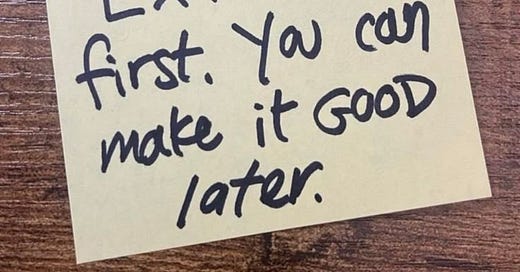 first. You can
make it GOOD
later.